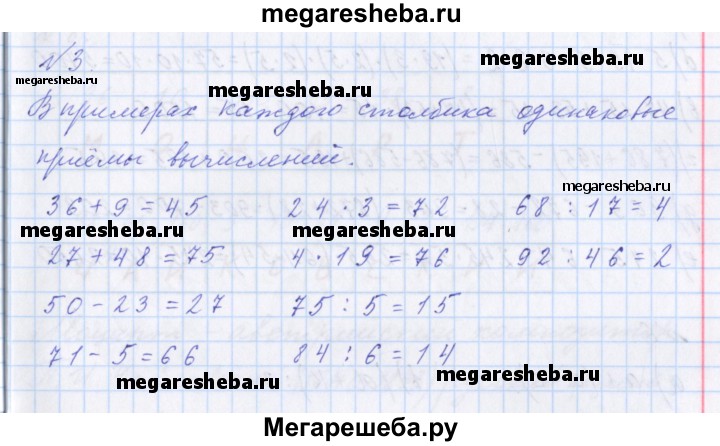 megaresheba.ru
№3
megaresheba.ru megaresheba.ru
В примерах каждого столбика одинаковые
приёмы вычислений.
megaresheba.ru
36 + 9 = 45 24 · 3 = 72 68 : 17 = 4
megaresheba.ru megaresheba.ru
27 + 48 = 75 4 · 19 = 76 92 : 46 = 2
50 - 23 = 27 75 : 5 = 15
71 - 5 = 66 84 : 6 = 14
megaresheba.ru megaresheba.ru
Мегарешеба.ру